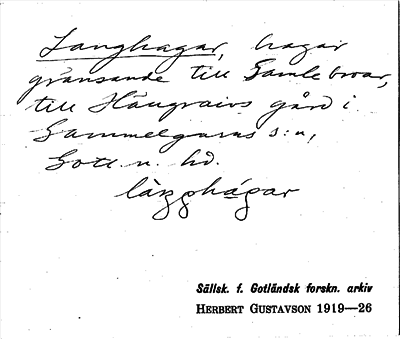 Langhagar, hagar
gränsande till Gamle broar,
till Haugraivs gård i
Gammelgarns s:n,
Gotl. n. hd.
hágar
Sällsk. f. Gotländsk forskn. arkiv
HERBERT GUSTAVSON 1919—26